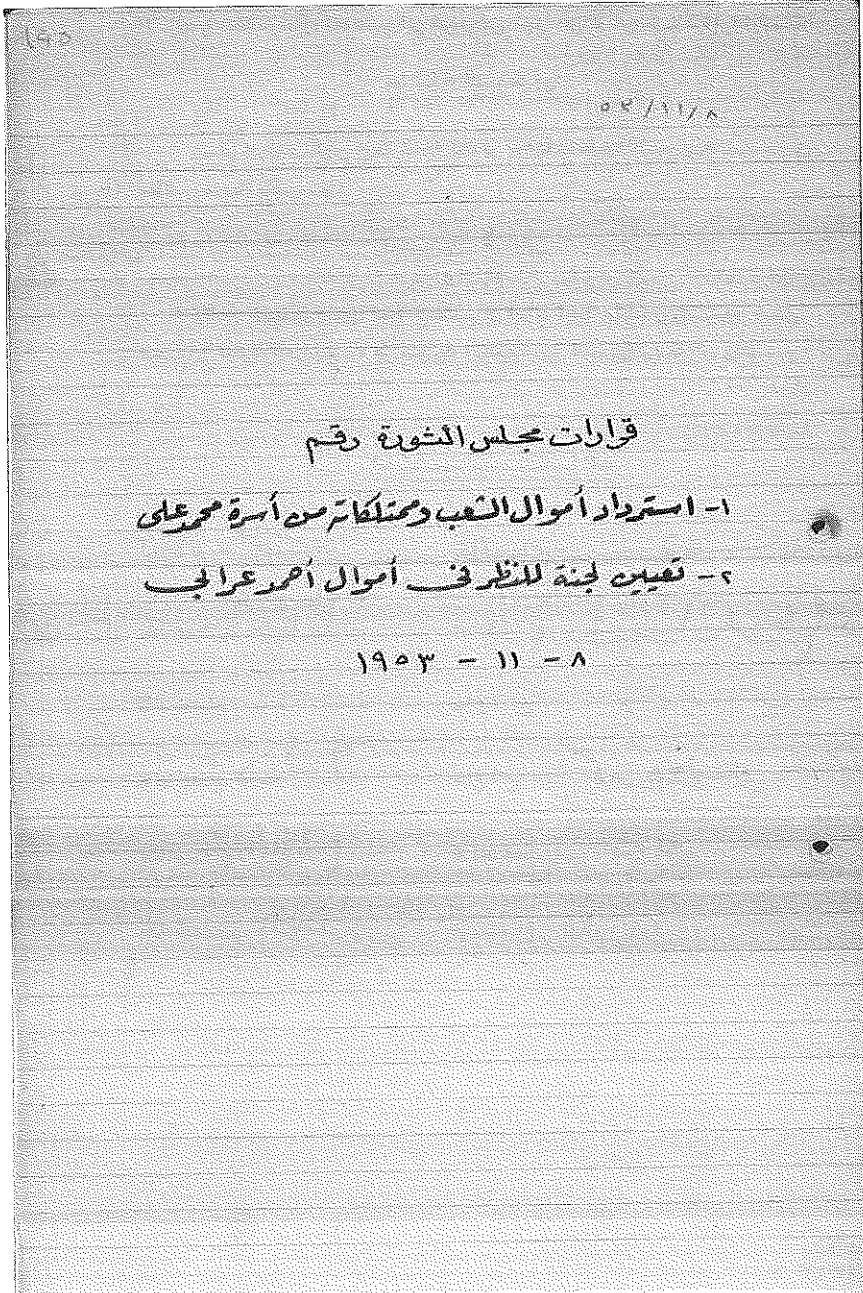 ٥٣/١١/٨
قرارات مجلس الثورة رقم
١- استرداد أموال الشعب وممتلكاته من أسرة محمد على
٢- تعيين لجنة للنظر فى أموال أحمد عرابى
٨ - ١١ - ١٩٥٣